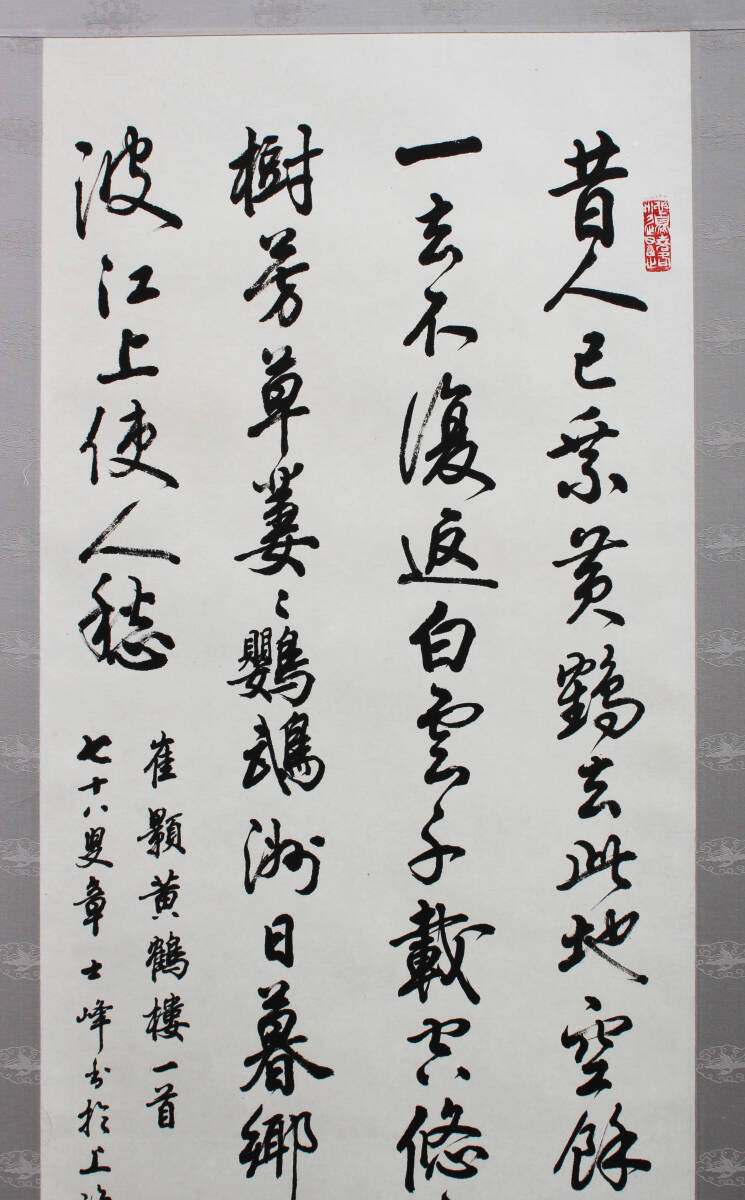 昔人已乘黃鶴去此地空餘
一去不復返白雲千載空悠
樹芳草萋〻鸚鵡洲日暮鄉
波江上使人愁
崔顥黃鶴樓一首
七十八叟章士峰書於上海